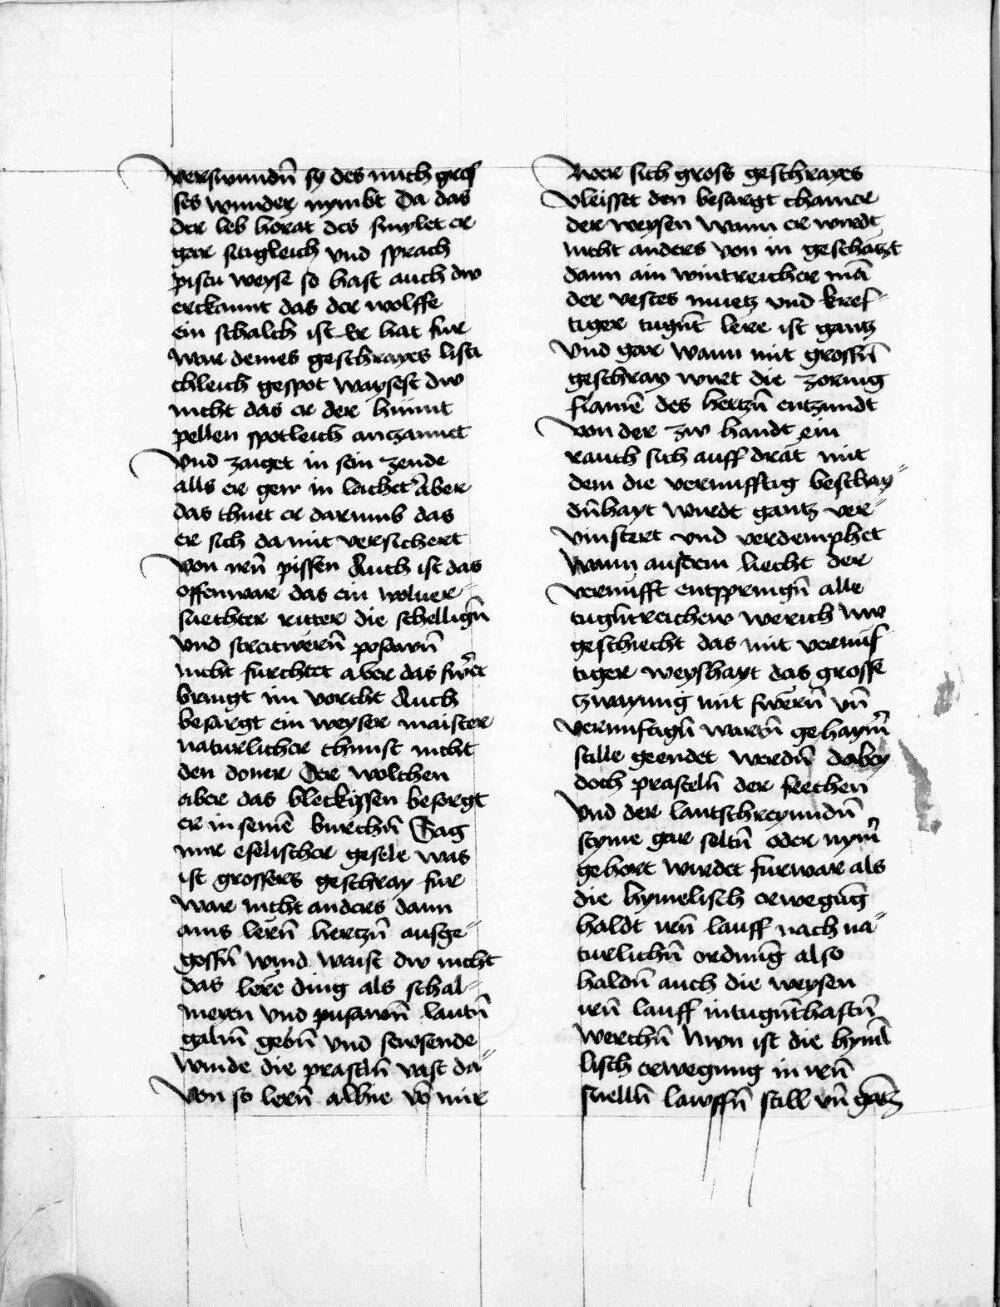 verswundn̄ sy des mich gros
ses wunder nymbt Da das
der leb horat des smylet er
gar sitigleich vnd sprach
pistu weyse so hast auch dw
erckannt das der wolffe
ein schalch ist Er hat fur
war deines geschrayes listi
chleich gespot waysest dw
nicht das er der hiimt
pellen spotleich anczannet
Vnd zaiget in sein zende
alls er gew in lachet Aber
das thuet er darumb das
er sich da mit versichert
Von irn̄ pissen Auch ist das
offenwar das ein woluer
suechter ritter die schellign̄
vnd streitwern̄ posawn̄
nicht furchtet aber das swert
bringt im vorcht Auch
besargt ein weyser maister
naturlicher chunst nicht
den doner Der wolchen
aber das bleckizssen besorgt
er in seinē burchn̄ Sag
mir eselischer geselle was
ist grossers geschray fur
war nicht anders dann
ains lern̄ hertzn̄ ausge
gossn̄ wind waist dw nicht
das lere ding als schal
meyen vnd pusawn̄ lautn̄
galm̄ gebn̄ vnd sewsende
winde die prasteln̄ vast da
von so lern̄ albie vō mir
Wer sich gross geschrayes
Vleisset den besargt chainer
der weysen wann er wirdt
nicht anders von in geschatzt
dann ain wintreicher mā
der vestes muetz vnd kref
tiger tugūt lere ist gantz
Vnd gar wann mit grossn̄
geschray wirt die zornig
flamē des hertzn̄ entzundt
Von der zw handt ein
rauch sich auff drat mit
dem die vernufftig beschay
dn̄hayt wirdt gantz ver
vinstert vnd verdemphet
Wann aus dem liecht der
vernufft entspringn̄ alle
tugn̄treichew werich wie
geschiecht das mit vernuf
tiger weyshayt das grosse
tzwayung mit swern̄ vn̄
vernuftign̄ warn̄ gehaym̄
stille geendet werdn̄ dabey
doch prasteln̄ der kecchen
Vnd der lautschreyundn̄
styme gar seltn̄ oder nym̄
gehort wirdet furwar als
die hymelisch erwegūg
haldt irn̄ lauff nach na
turlichn̄ ordnūg also
haldn̄ auch die weysen
irn̄ lauff in tugn̄thaftn̄
werchn̄ Nun ist die hymē
lisch erwegung in irn̄
snelln̄ lawffn̄ still vn̄ gātz